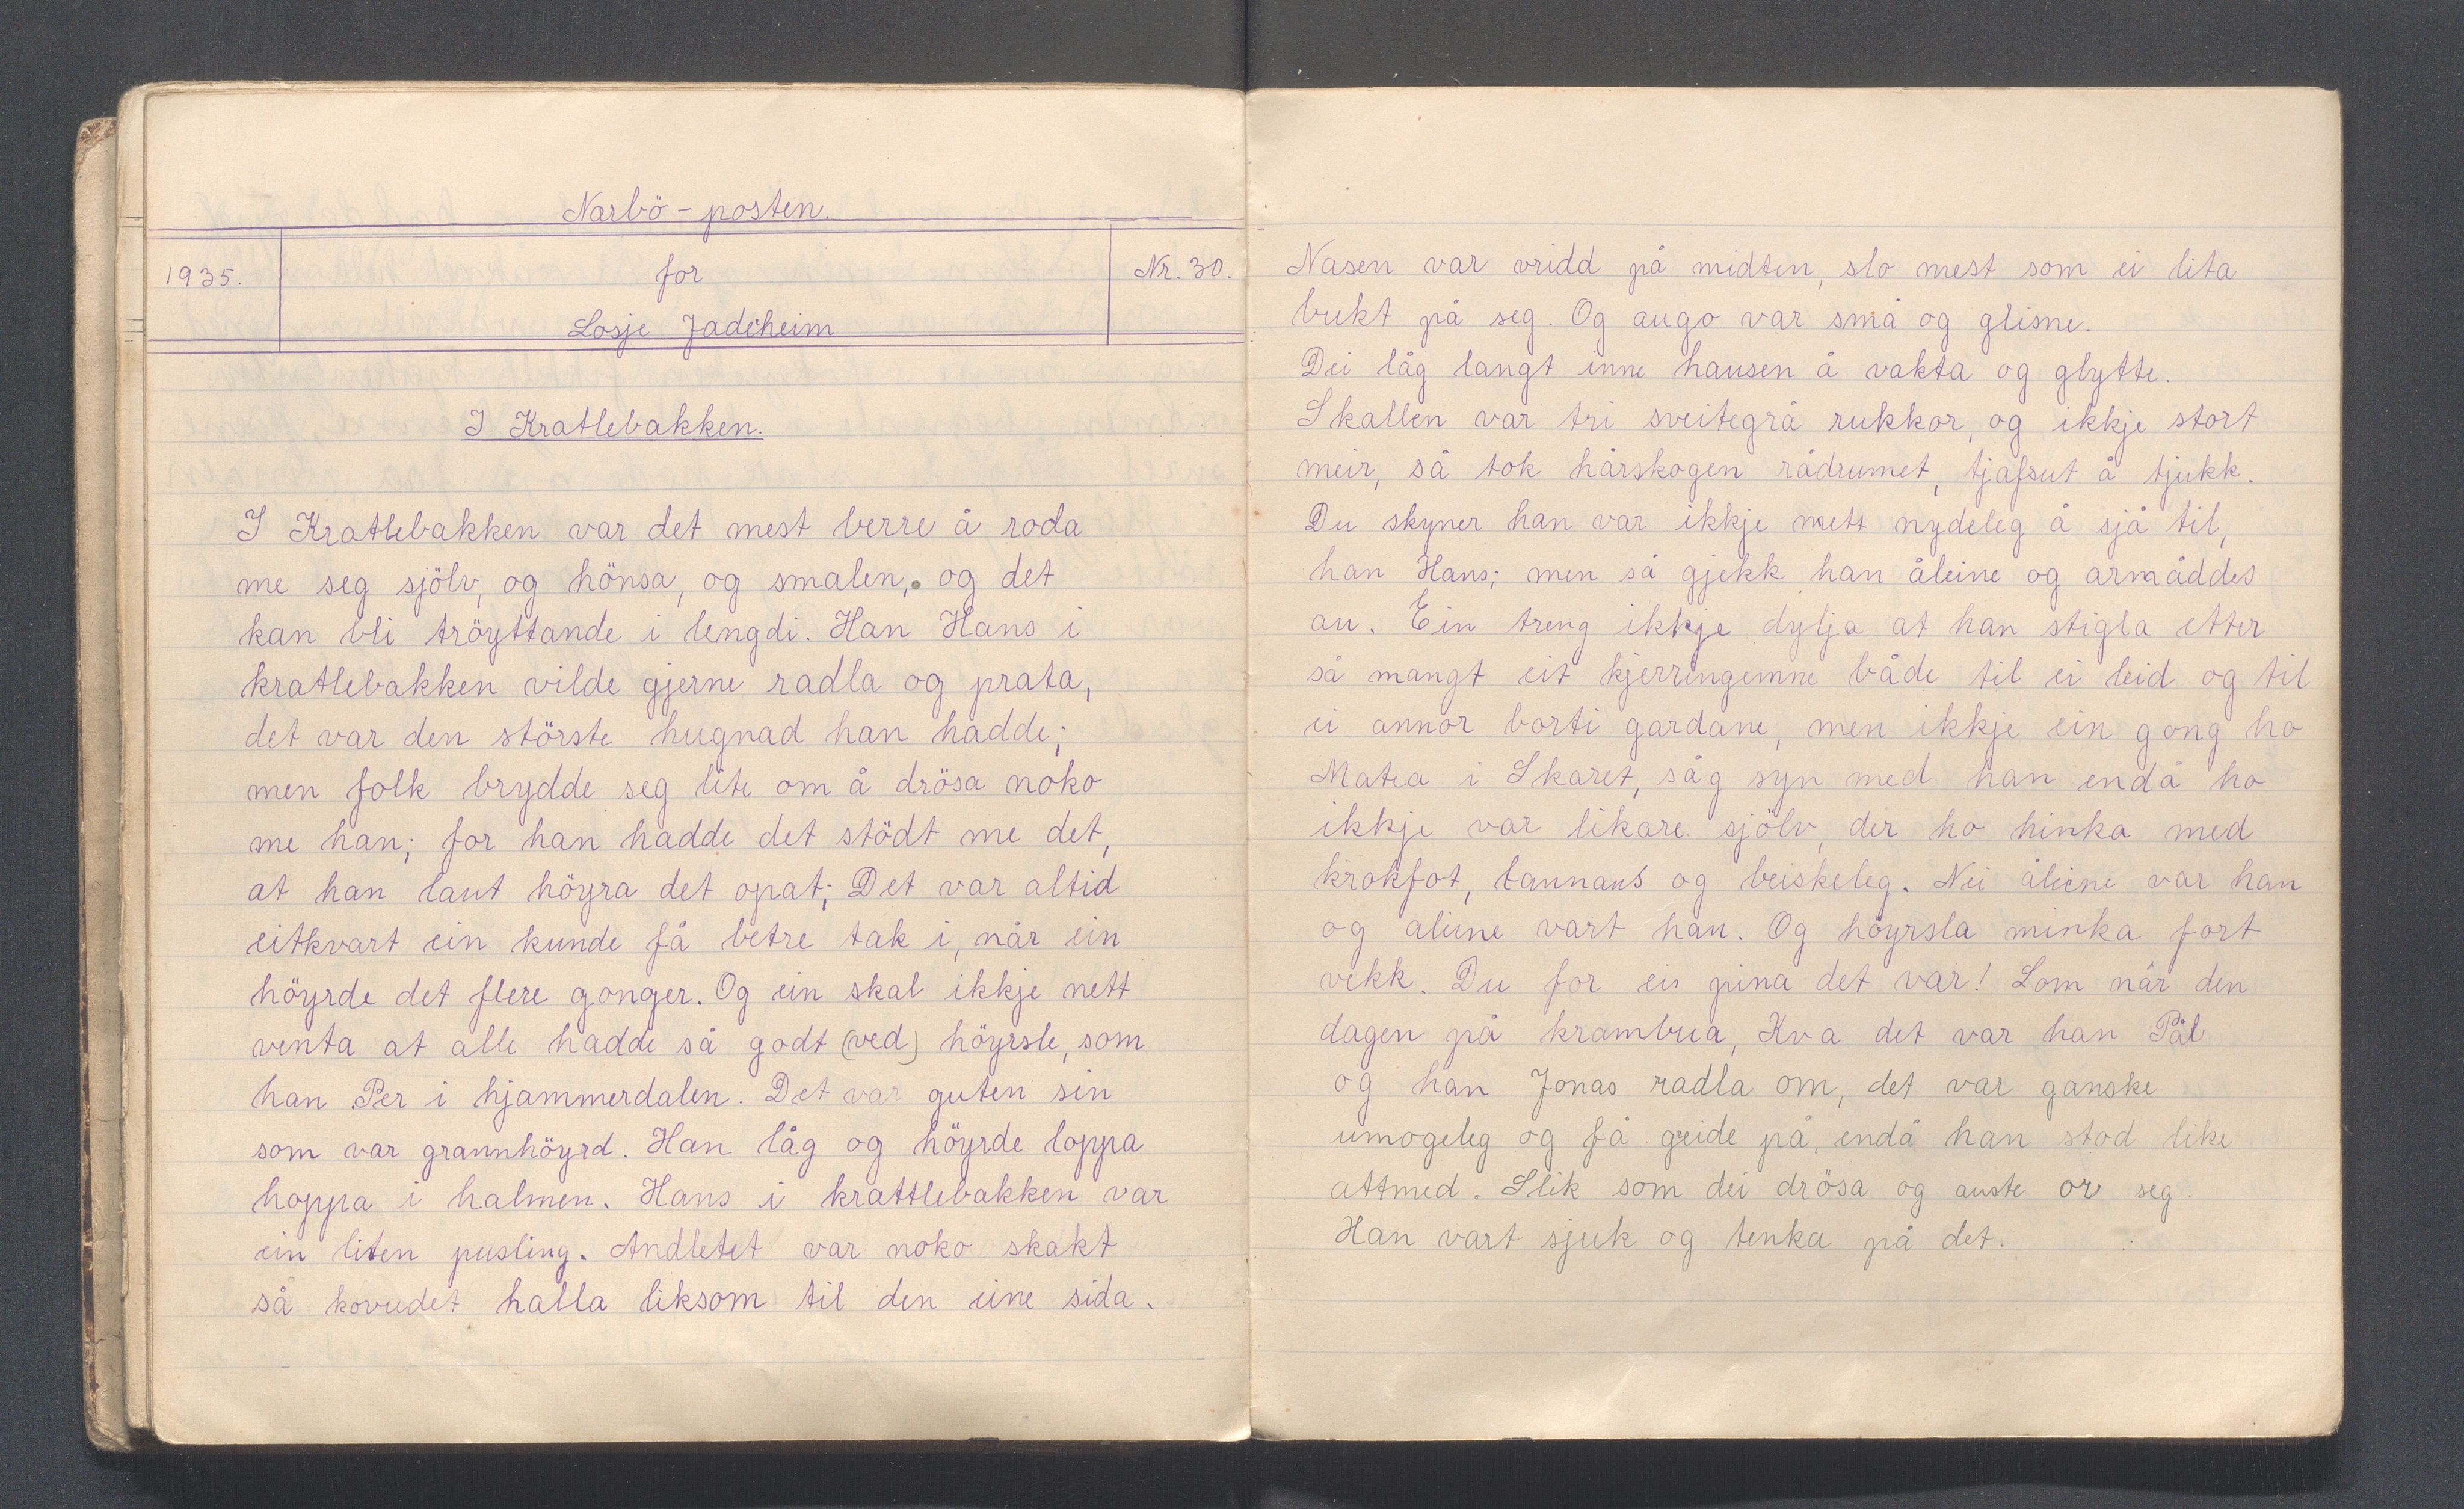 Narbö-posten.
1935.
for
Nr. 30.
Losje Jadeheim
I Kratlebakken.
I Kratlebakken var det mest berre å roda
me seg sjölv, og hönsa, og smalen, og det
kan bli tröyttande i lengdi. Han Hans i
kratlebakken vilde gjerne radla og prata,
det var den störste hugnad han hadde;
men folk brydde seg lite om å drösa noko
me han; for han hadde det stödt me det,
at han laut höyra det opat; Det var altid
eitkvart ein kunde få betre tak i, når ein
höyrde det flere gonger. Og ein skal ikkje nett
venta at alle hadde så godt (ved) höyrsle, som
han Per i hjammerdalen. Det var guten sin
som var grannhöyrd. Han låg og höyrde loppa
hoppa i halmen. Hans i krattlebakken var
ein liten pusling. Andletet var noko skakt
så hovudet halla liksom til den eine sida.
Nasen var vridd på midten, slo mest som ei lita
bukt på seg. Og augo var små og glisne.
Dei låg langt inne hausen å vakta og glytte.
Skallen var tri sveitegrå rukkor, og ikkje stort
meir, så tok hårskogen rådrumet, tjafsut å tjukk.
Du skyner han var ikkje nett nydeleg å sjå til,
han Hans; men så gjekk han åleine og armåddes
au. Ein treng ikkje dylja at han stigla etter
så mangt eit kjerringemne både til ei leid og til
ei annor borti gardane, men ikkje ein gong ho
Matea i Skaret, såg syn med han endå ho
ikkje var likare sjölv, der ho hinka med
krokfot, tannaus og beiskeleg. Nei åleine var han
og aleine vart han. Og höyrsla minka fort
vekk. Du for ei pina det var! Som når den
dagen på krambua, Kva det var han Pål
og han Jonas radla om, det var ganske
umogeleg og få greide på, endå han stod like
attmed. Slik som dei drösa og auste or seg.
Han vart sjuk og tenka på det.